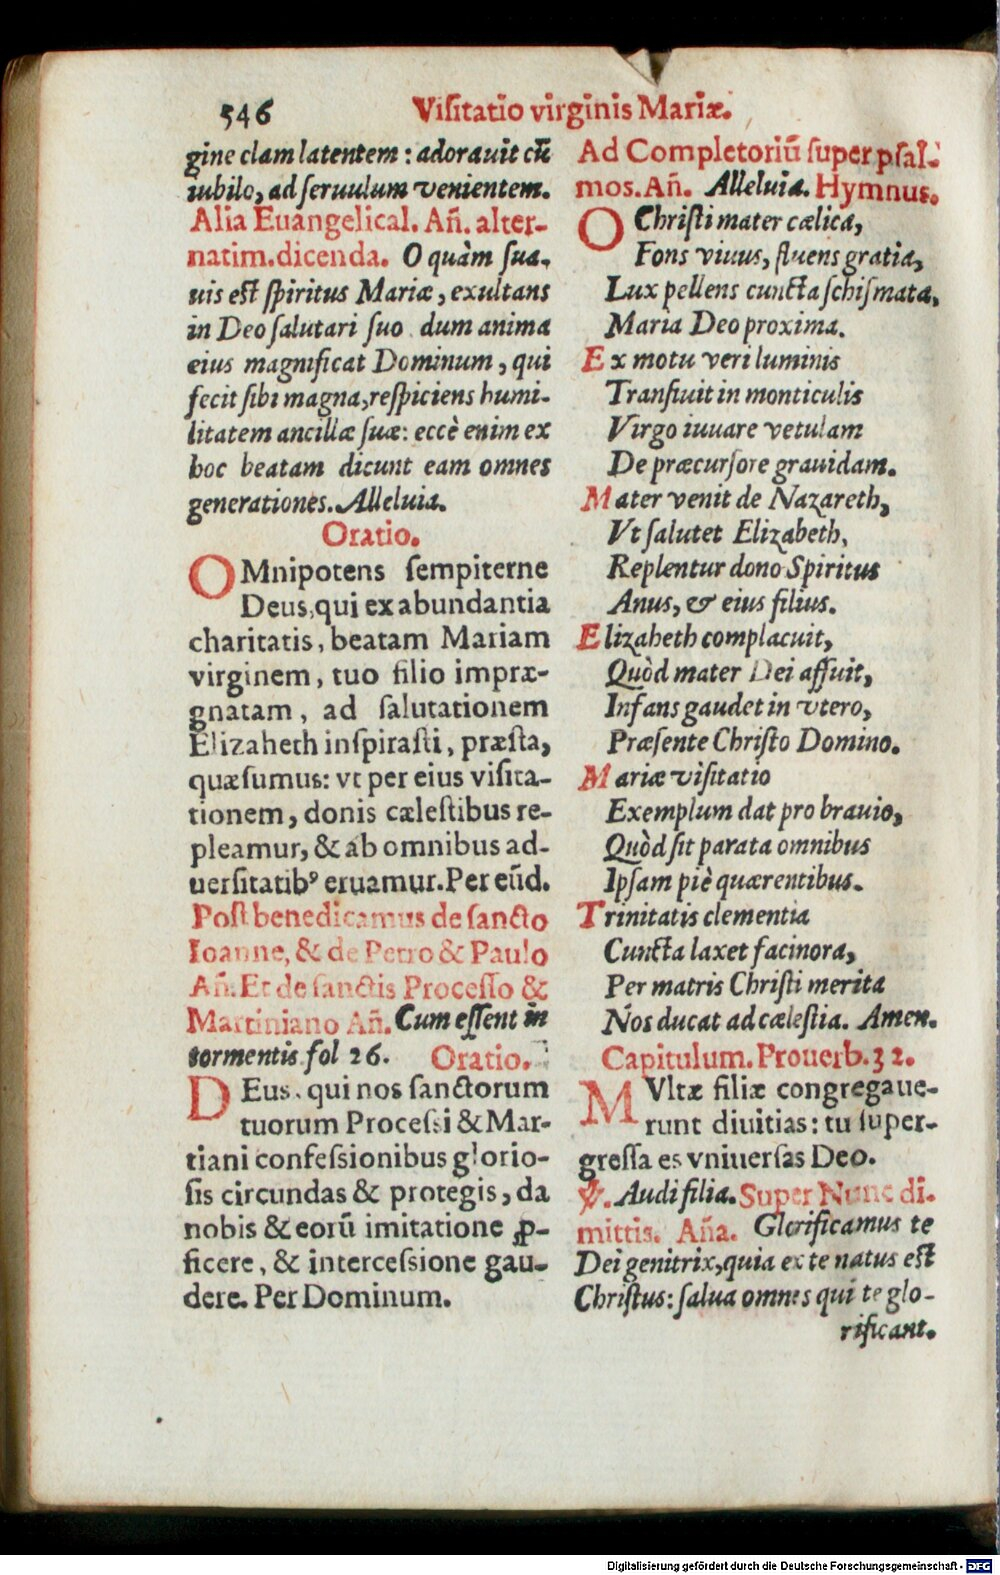 546 Viſitatio virginis Mariæ.
gine clam latentem : adorauit cū
iubilo, ad ſeruulum venientem.
Alia Euangelical. Añ. alter-
natim. dicenda. O quàm ſua-
uis eſt ſpiritus Mariæ, exultans
in Deo ſalutari ſuo dum anima
eius magnificat Dominum, qui
fecit ſibi magna, reſpiciens humi-
litatem ancillæ ſuæ: eccè enim ex
hoc beatam dicunt eam omnes
generationes. Alleluia.
Oratio.
OMnipotens ſempiterne
Deus, qui ex abundantia
charitatis, beatam Mariam
virginem, tuo filio impræ-
gnatam, ad ſalutationem
Elizaheth inſpiraſti, præſta,
quæſumus: vt per eius viſita-
tionem, donis cæleſtibus re-
pleamur, & ab omnibus ad-
uerſitatibꝰ eruamur. Per eūd.
Poſt benedicamus de ſancto
Ioanne, & de Petro & Paulo
Añ. Et de ſanctis Proceſſo &
Martiniano Añ. Cum eſſent in
tormentis fol 26. Oratio.
DEus. qui nos ſanctorum
tuorum Proceſsi & Mar-
tiani confeſsionibus glorio-
ſis circundas & protegis, da
nobis & eorū imitatione ꝓ-
ficere, & interceſsione gau-
dere. Per Dominum.
Ad Completoriū ſuper pſal-
mos. Añ. Alleluia. Hymnus.
O Chriſti mater cælica,
Fons viuus, fluens gratia,
Lux pellens cuncta ſchiſmata,
Maria Deo proxima.
Ex motu veri luminis
Tranſiuit in monticulis
Virgo iuuare vetulam
De præcurſore grauidam.
Mater venit de Nazareth,
Vt ſalutet Elizabeth,
Replentur dono Spiritus
Anus, & eius filius.
Elizaheth complacuit,
Quòd mater Dei affuit,
Infans gaudet in vtero,
Præſente Chriſto Domino.
Mariæ viſitatio
Exemplum dat pro brauio,
Quòd ſit parata omnibus
Ipſam piè quærentibus.
Trinitatis clementia
Cuncta laxet facinora,
Per matris Chriſti merita
Nos ducat ad cæleſtia. Amen.
Capitulum. Prouerb. 32.
MVltæ filiæ congregaue-
runt diuitias: tu ſuper-
greſſa es vniuerſas Deo.
℣. Audi filia. Super Nunc di-
mittis. Aña. Glorificamus te
Dei genitrix, quia ex te natus eſt
Chriſtus: ſalua omnes qui te glo-
rificant.
Digitalisierung gefördert durch die Deutsche Forschungsgemeinschaft - DFG